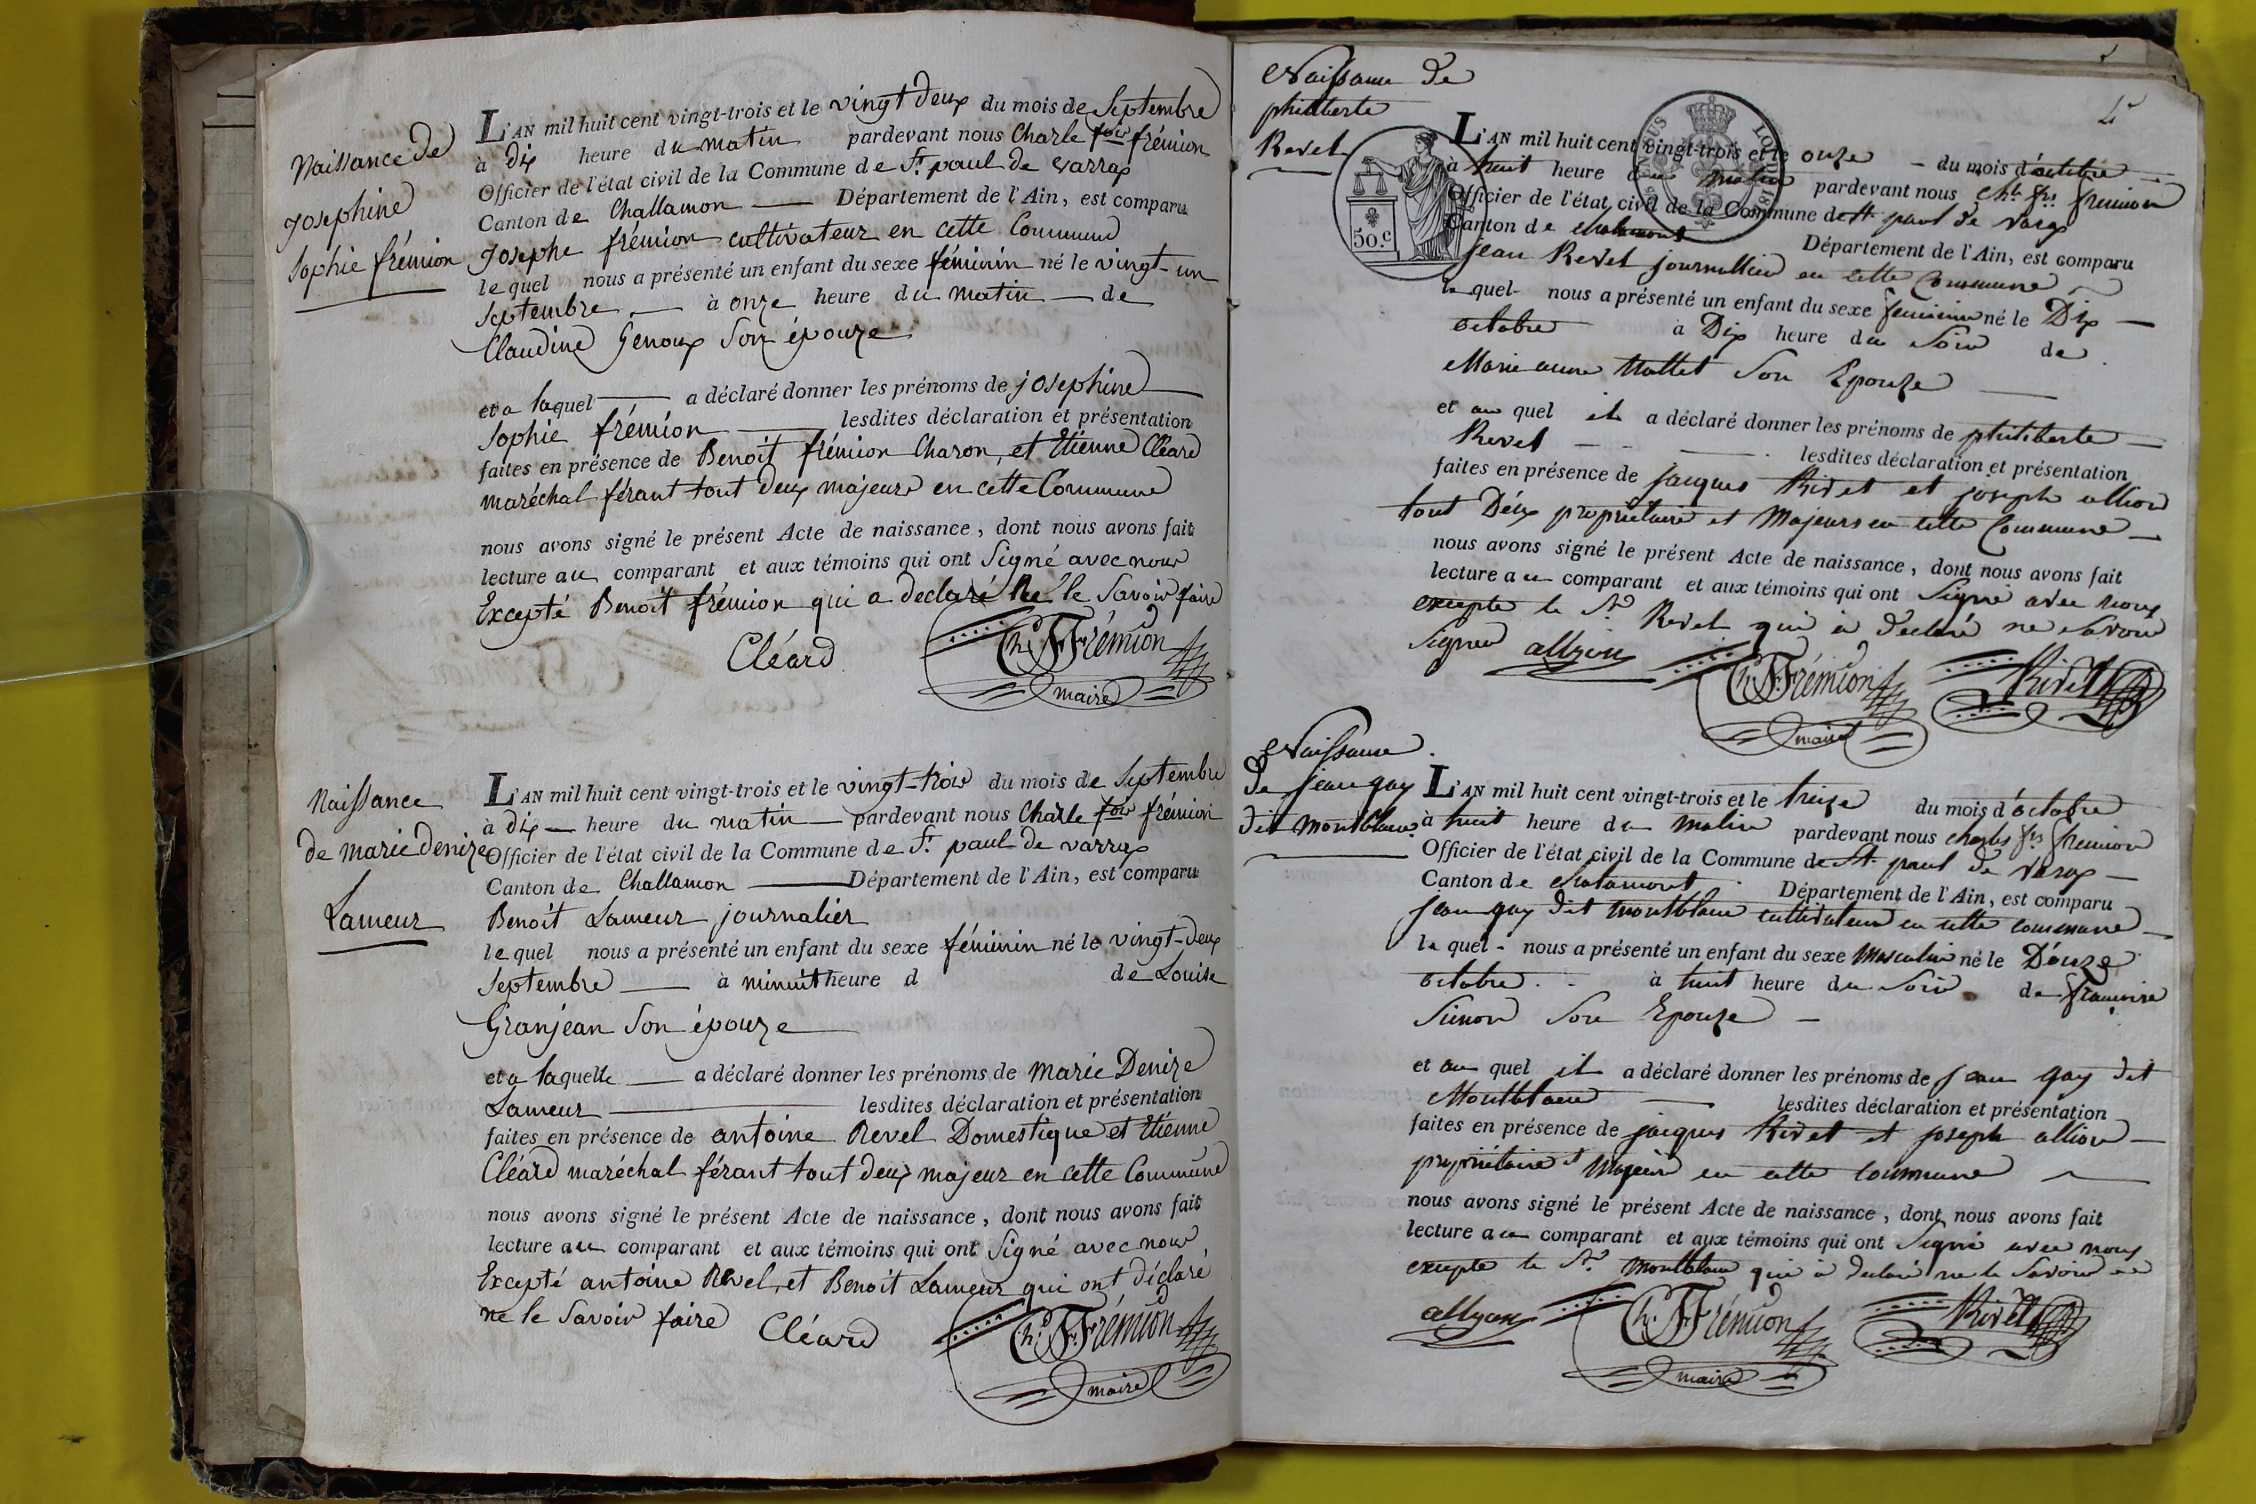 Naissance de
Josephine
Sophie frémion
L'AN mil huit cent vingt-trois et le vingt deux du mois de Septembre
à dix heure du matin pardevant nous Charle fois frémion
Officier de l'état civil de la Commune de St. paul de varrax
Canton de Challamon Département de l'Ain, est comparu
Josephe frémion cultivateur en cette Commune
le quel nous a présenté un enfant du sexe féminin né le vingt-un
Septembre à onze heure du matin de
Claudine Genoux Son épouze
et a laquel a déclaré donner les prénoms de josephine
Sophie frémion lesdites déclaration et présentation
faites en présence de Benoit frémion Charon, et Etienne Cléard
maréchal férant tout deux majeurs en cette Commune
nous avons signé le présent Acte de naissance, dont nous avons fait
lecture au comparant et aux témoins qui ont Signé avec nous
Excepté Benoit frémion qui a declaré Né le Savoir faire
Cléard Ch. F. Frémion
maire
Naissance
de marie denize
Lameur
L'AN mil huit cent vingt-trois et le vingt-trois du mois de Septembre
à dix heure du matin pardevant nous Charle fois frémion
Officier de l'état civil de la Commune de St. paul de varrax
Canton de Challamon Département de l'Ain, est comparu
Benoit Lameur journalier
le quel nous a présenté un enfant du sexe féminin né le vingt-deux
Septembre à minuit heure d de Louise
Granjean Son épouze
et a laquelle a déclaré donner les prénoms de marie Denize
Lameur lesdites déclaration et présentation
faites en présence de antoine Revel Domestique et Etienne
Cléard maréchal férant tout deux majeur en cette Commune
nous avons signé le présent Acte de naissance, dont nous avons fait
lecture au comparant et aux témoins qui ont Signé avec nous
Excepté antoine Revel, et Benoit Lameur qui ont déclaré
ne le Savoir faire Cléard Ch. F. Frémion
maire
Naissance de
philiberte
Revel
50.c
L'AN mil huit cent vingt-trois et le onze du mois d'octobre
à huit heure du matin pardevant nous Ch. fs. fremion
Officier de l'état civil de la Commune de St. paul de Varax
Canton de chalamont Département de l'Ain, est comparu
jean Revel journallier en cette Commune
le quel nous a présenté un enfant du sexe feminin né le Dix
octobre à Dix heure du Soir de
Marie anne Mallet Son Epouze
et au quel il a déclaré donner les prénoms de philiberte
Revel lesdites déclaration et présentation
faites en présence de jacques Rivet et joseph allion
tout Déux propriétaire et Majeurs en cette Commune
nous avons signé le présent Acte de naissance, dont nous avons fait
lecture au comparant et aux témoins qui ont Signé avec nous
excepte le Sr. Revel qui a declaré ne Savoir
Signer allyon Ch. F. Frémion Rivet
maire
Naissance
De jean gay
dit Montblanc
L'AN mil huit cent vingt-trois et le treize du mois d'octobre
à huit heure du matin pardevant nous charles fs. fremion
Officier de l'état civil de la Commune de St. paul de Varax
Canton de chalamont Département de l'Ain, est comparu
jean gay dit montblanc cultivateur en cette commune
le quel nous a présenté un enfant du sexe Masculin né le Douze
octobre à huit heure du Soir de françoise
Simon Son Epouze
et au quel il a déclaré donner les prénoms de jean gay dit
Montblanc lesdites déclaration et présentation
faites en présence de jacques Rivet et joseph allion
propriétaire et Majeur en cette commune
nous avons signé le présent Acte de naissance, dont nous avons fait
lecture au comparant et aux témoins qui ont Signé avec nous
excepte le Sr. montblanc qui a declaré ne le Savoir
allyon Ch. F. Frémion Rivet
maire